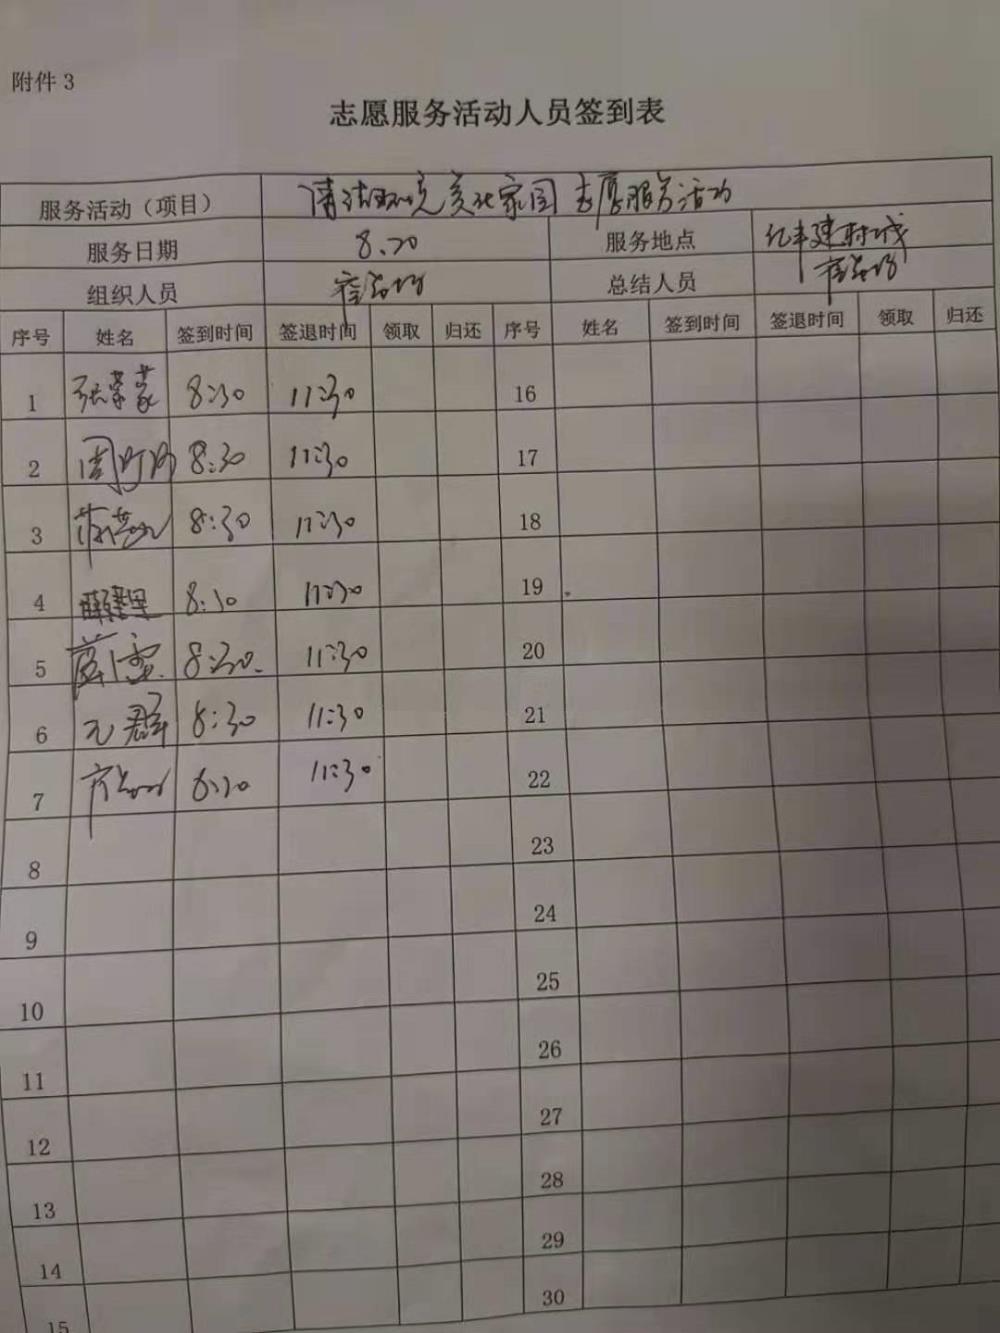 附件 3
志愿服务活动人员签到表
服务活动（项目） 清洁环境 美化家园 志愿服务活动
服务日期 8.20 服务地点 亿丰建材城
组织人员 总结人员
序号 姓名 签到时间 签退时间 领取 归还 序号 姓名 签到时间 签退时间 领取 归还
1 8:30 11:30 16
2 8:30 11:30 17
3 8:30 11:30 18
4 8:30 11:30 19
5 8:30 11:30 20
6 元群 8:30 11:30 21
7 8:30 11:30 22
8 23
9 24
10 25
11 26
12 27
13 28
14 29
15 30